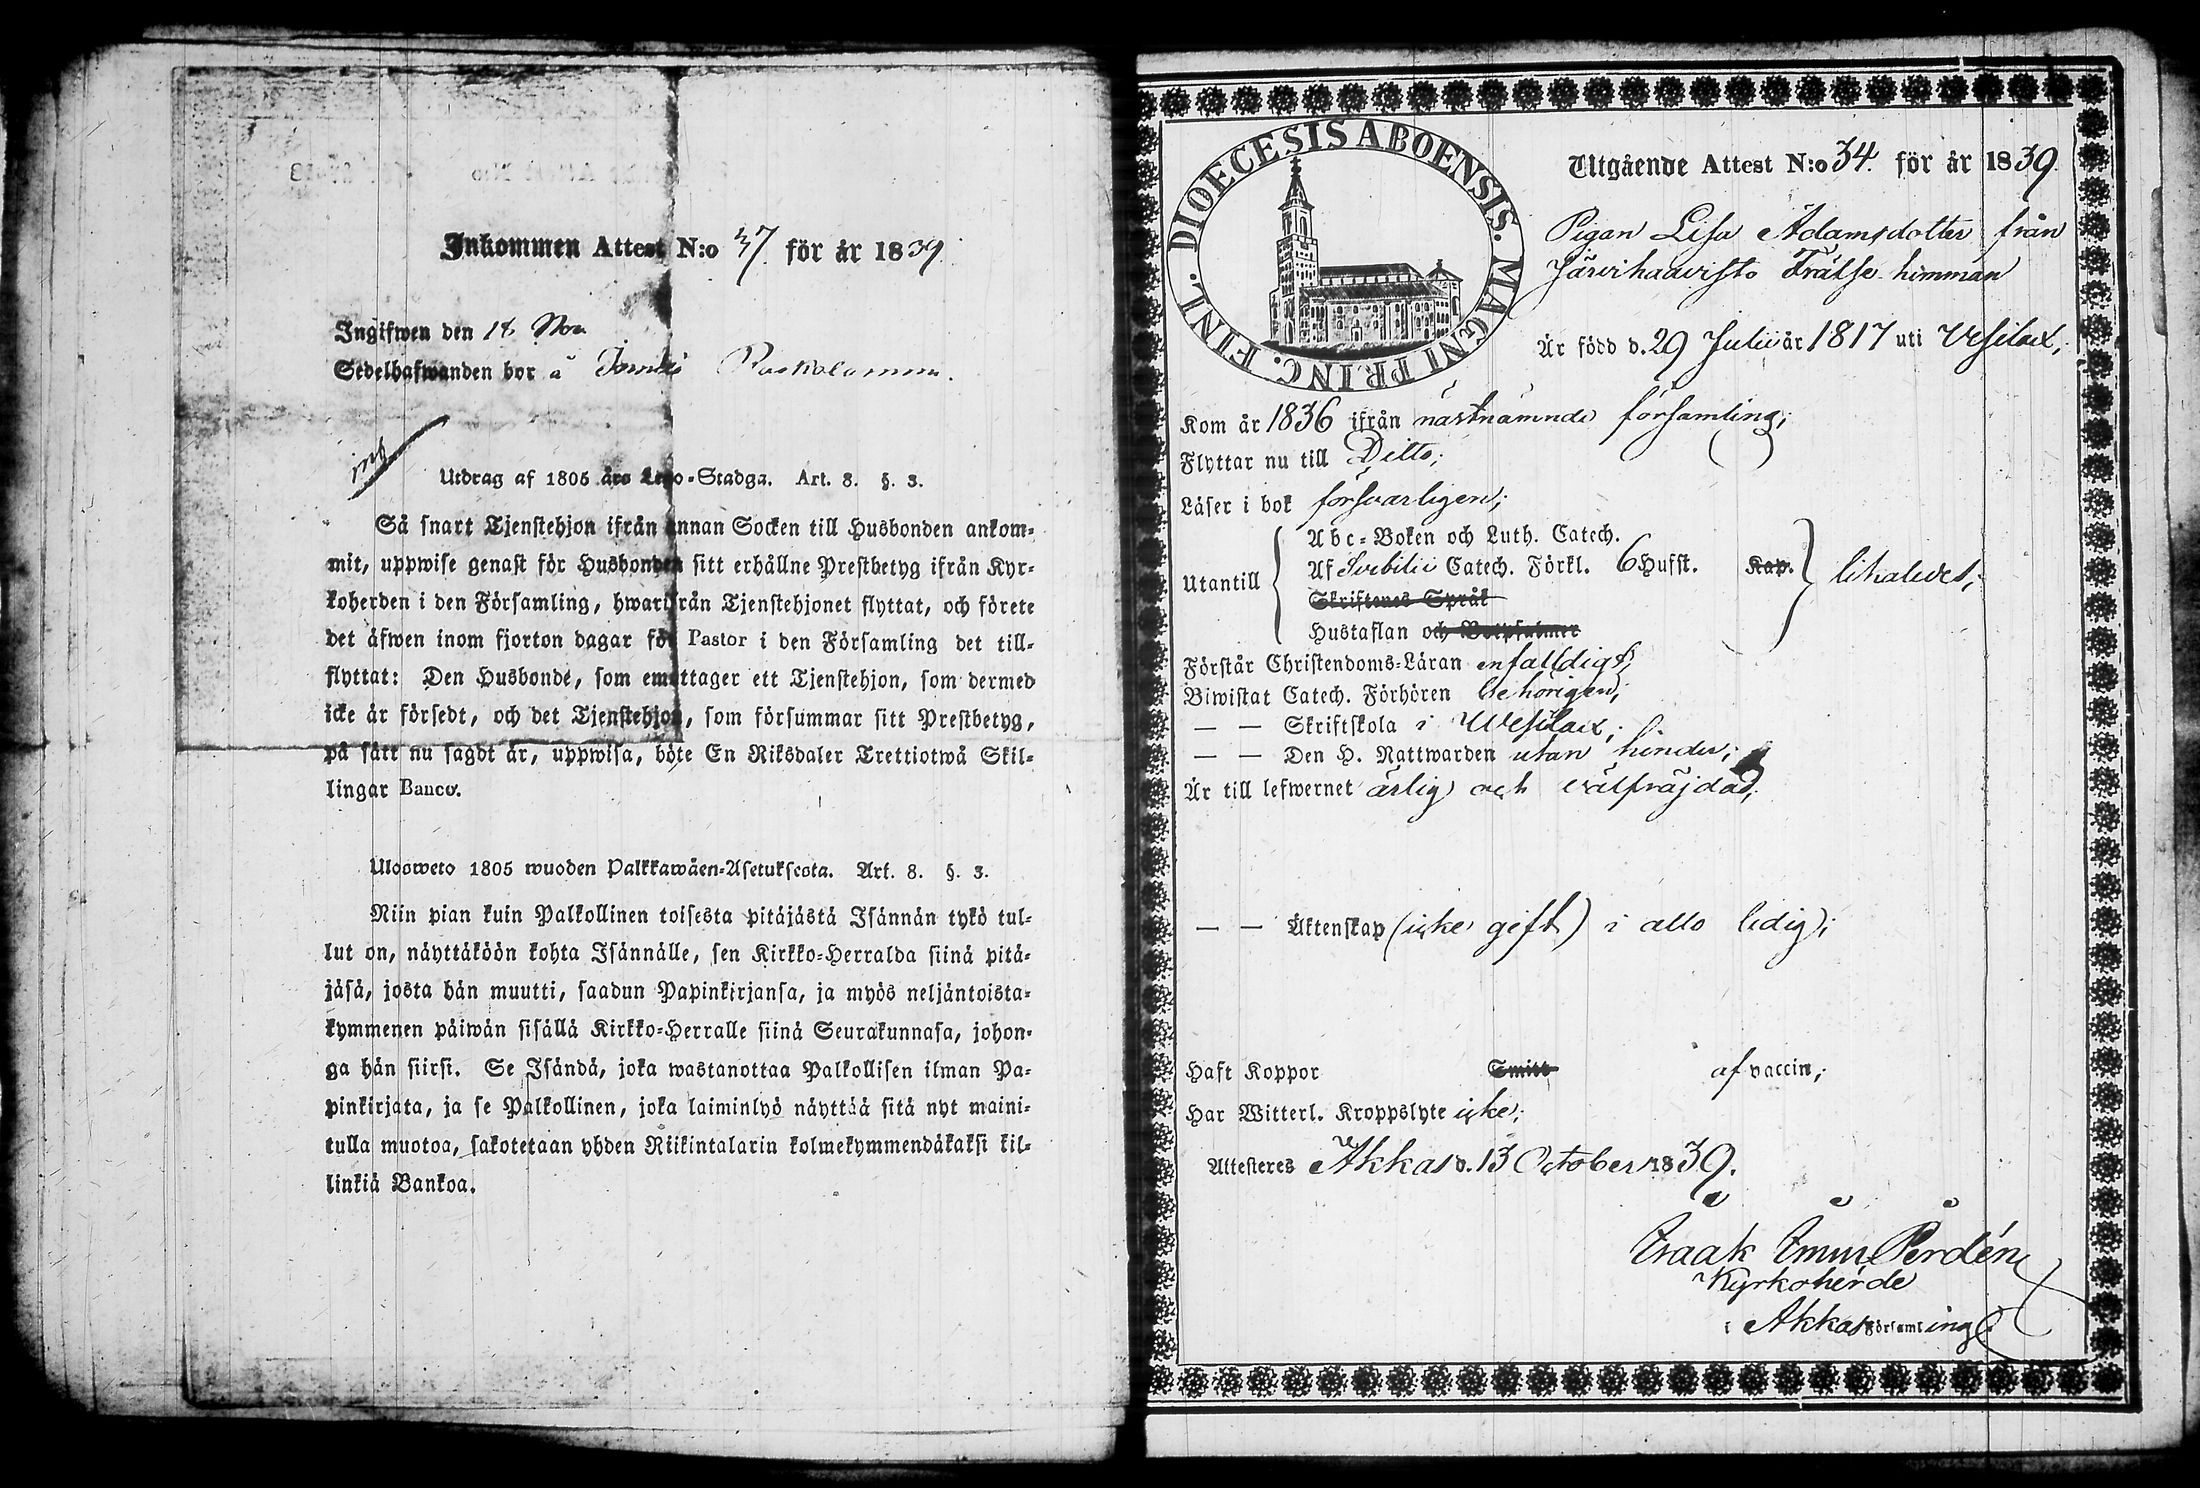 Inkommen Attest N:o 37. för år 1839.
Ingifwen den 18 Nov
Sedelhafwanden bor å
Utdrag af 1805 års Lego-Stadga. Art. 8. §. 3.
Så snart Tjenstehjon ifrån annan Socken till Husbonden ankom-
mit, uppwise genast för Husbonden sitt erhållne Prestbetyg ifrån Kyr-
koherden i den Församling, hwarifrån Tjenstehjonet flyttat, och förete
det äfwen inom fjorton dagar för Pastor i den Församling det till-
flyttat: Den Husbonde, som emottager ett Tjenstehjon, som dermed
icke är försedt, och det Tjenstehjon, som försummar sitt Prestbetyg,
på sätt nu sagdt är, uppwisa, böte En Riksdaler Trettiotwå Skil-
lingar Banco.
Ulosweto 1805 wuoden Palkkawäen-Asetuksesta. Art. 8. §. 3.
Niin pian kuin Palkollinen toisesta pitäjästä Isännän tykö tul-
lut on, näyttäköön kohta Isännälle, sen Kirkko-Herralda siinä pitä-
jäsä, josta hän muutti, saadun Papinkirjansa, ja myös neljäntoista-
kymmenen päiwän sisällä Kirkko-Herralle siinä Seurakunnasa, johon-
ga hän siirsi. Se Isändä, joka wastanottaa Palkollisen ilman Pa-
pinkirjata, ja se Palkollinen, joka laiminlyö näyttää sitä nyt maini-
tulla muotoa, sakotetaan yhden Riikintalarin kolmekymmendäkaksi kil-
linkiä Bankoa.
DIOECESIS ABOENSIS. MAGNI PRINC. FINL.
Utgående Attest N:o 34. för år 1839.
Pigan Lisa Adamsdotter från
Järvihaavisto Frälse hemman
Är född d. 29 Julii år 1817 uti Vesilax,
Kom år 1836 ifrån nästnämnde församling;
Flyttar nu till Ditto;
Läser i bok försvarligen;
Utantill
Abc-Boken och Luth. Catech.
Af Svebilii Catech. Förkl. 6 Hufst. Kap.
Skriftenes Språk
Hustaflan och Botpsalmer
likaledes;
Förstår Christendoms-Läran enfaldigt;
Biwistat Catech. Förhören behörigen;
— — Skriftskola i Wesilax;
— — Den H. Nattwarden utan hinder;
Är till lefwernet ärlig och välfräjdad;
— — Äktenskap (icke gift) i allo ledig;
Haft Koppor Smitt af vaccin;
Har Witterl. Kroppslyte icke;
Attesteres Akkas d. 13 October 1839.
Isaak Imm Perdén
Kyrkoherde
i Akkas Församling.